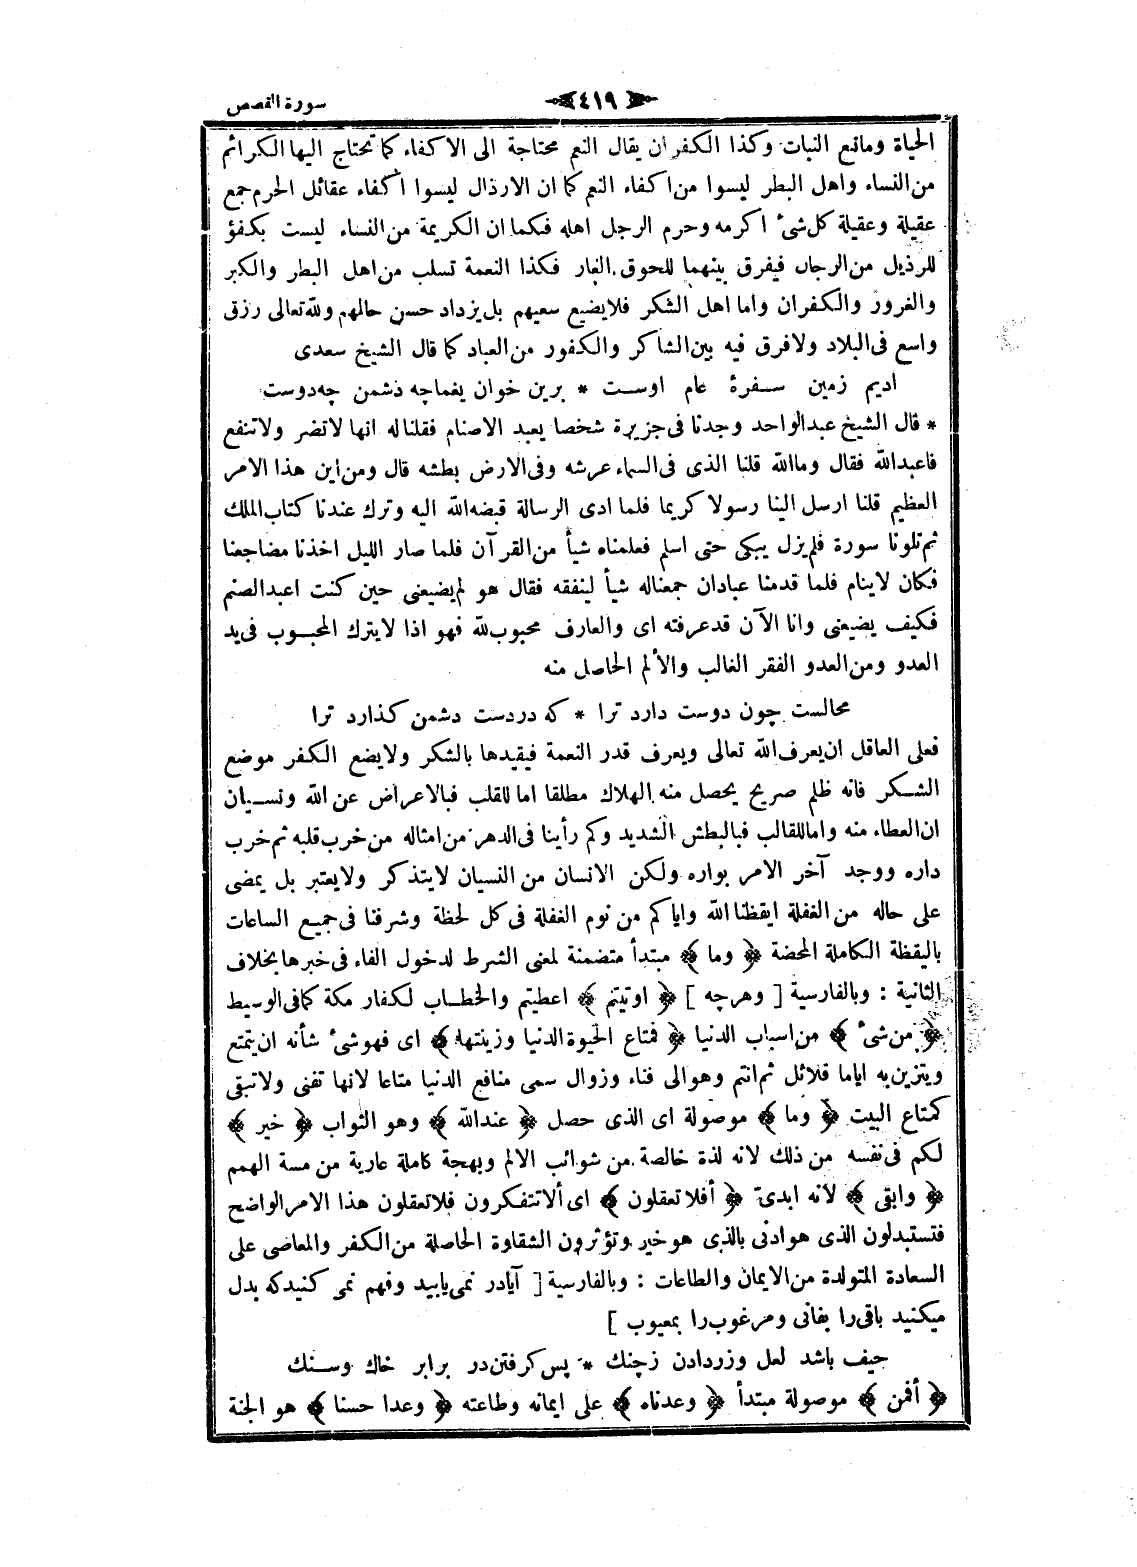 سورة القصص
٤١٩
الحياة ومانع النبات وكذا الكفران يقال النعم محتاجة الى الاكفاء كما تحتاج اليها الكرائم
من النساء واهل البطر ليسوا من اكفاء النعم كما ان الارذال ليسوا أكفاء عقائل الحرم جمع
عقيلة وعقيلة كل شئ اكرمه وحرم الرجل اهله فكما ان الكريمة من النساء ليست بكفؤ
للرذيل من الرجال فيفرق بينهما للحوق العار فكذا النعمة تسلب من اهل البطر والكبر
والغرور والكفران واما اهل الشكر فلا يضيع سعيهم بل يزداد حسن حالهم ولله تعالى رزق
واسع فى البلاد ولا فرق فيه بين الشاكر والكفور من العباد كما قال الشيخ سعدى
اديم زمين سفرهٔ عام اوست * برين خوان يغماچه دشمن چه دوست
* قال الشيخ عبد الواحد وجدنا فى جزيرة شخصا يعبد الاصنام فقلنا له انها لا تضر ولا تنفع
فاعبد الله فقال وما الله قلنا الذى فى السماء عرشه وفى الارض بطشه قال ومن اين هذا الامر
العظيم قلنا ارسل الينا رسولا كريما فلما ادى الرسالة قبضه الله اليه وترك عندنا كتاب الملك
ثم تلونا سورة فلم يزل يبكى حتى اسلم فعلمناه شيأ من القرآن فلما صار الليل اخذنا مضاجعنا
فكان لا ينام فلما قدمنا عبادان جمعنا له شيأ لينفقه فقال هو لم يضيعنى حين كنت اعبد الصنم
فكيف يضيعنى وانا الآن قد عرفته اى والعارف محبوب لله فهو اذا لا يترك المحبوب فى يد
العدو ومن العدو الفقر الغالب والألم الحاصل منه
محالست چون دوست دارد ترا * كه دردست دشمن كذارد ترا
فعلى العاقل ان يعرف الله تعالى ويعرف قدر النعمة فيقيدها بالشكر ولا يضع الكفر موضع
الشكر فانه ظلم صريح يحصل منه الهلاك مطلقا اما للقلب فبالاعراض عن الله ونسيان
ان العطاء منه واما للقالب فبالبطش الشديد وكم رأينا فى الدهر من امثاله من خرب قلبه ثم خرب
داره ووجد آخر الامر بواره ولكن الانسان من النسيان لا يتذكر ولا يعتبر بل يمضى
على حاله من الغفلة ايقظنا الله واياكم من نوم الغفلة فى كل لحظة وشرفنا فى جميع الساعات
باليقظة الكاملة المحضة ﴿ وما ﴾ مبتدأ متضمنة لمعنى الشرط لدخول الفاء فى خبرها بخلاف
الثانية : وبالفارسية [ وهرچه ] ﴿ اوتيتم ﴾ اعطيتم والخطاب لكفار مكة كما فى الوسيط
﴿ من شئ ﴾ من اسباب الدنيا ﴿ فمتاع الحيوة الدنيا وزينتها ﴾ اى فهو شئ شأنه ان يتمتع
ويتزين به اياما قلائل ثم انتم وهو الى فناء وزوال سمى منافع الدنيا متاعا لانها تفنى ولا تبقى
كمتاع البيت ﴿ وما ﴾ موصولة اى الذى حصل ﴿ عند الله ﴾ وهو الثواب ﴿ خير ﴾
لكم فى نفسه من ذلك لانه لذة خالصة من شوائب الالم وبهجة كاملة عارية من مسة الهمم
﴿ وابقى ﴾ لانه ابدىّ ﴿ أفلا تعقلون ﴾ اى ألا تتفكرون فلا تعقلون هذا الامر الواضح
فتستبدلون الذى هو ادنى بالذى هو خير وتؤثرون الشقاوة الحاصلة من الكفر والمعاصى على
السعادة المتولدة من الايمان والطاعات : وبالفارسية [ آيا در نمى يابيد وفهم نمى كنيد كه بدل
ميكنيد باقى را بفانى ومرغوب را بمعيوب ]
حيف باشد لعل وزردادن زچنك * پس كرفتن در برابر خاك وسنك
﴿ أفمن ﴾ موصولة مبتدأ ﴿ وعدناه ﴾ على ايمانه وطاعته ﴿ وعدا حسنا ﴾ هو الجنة